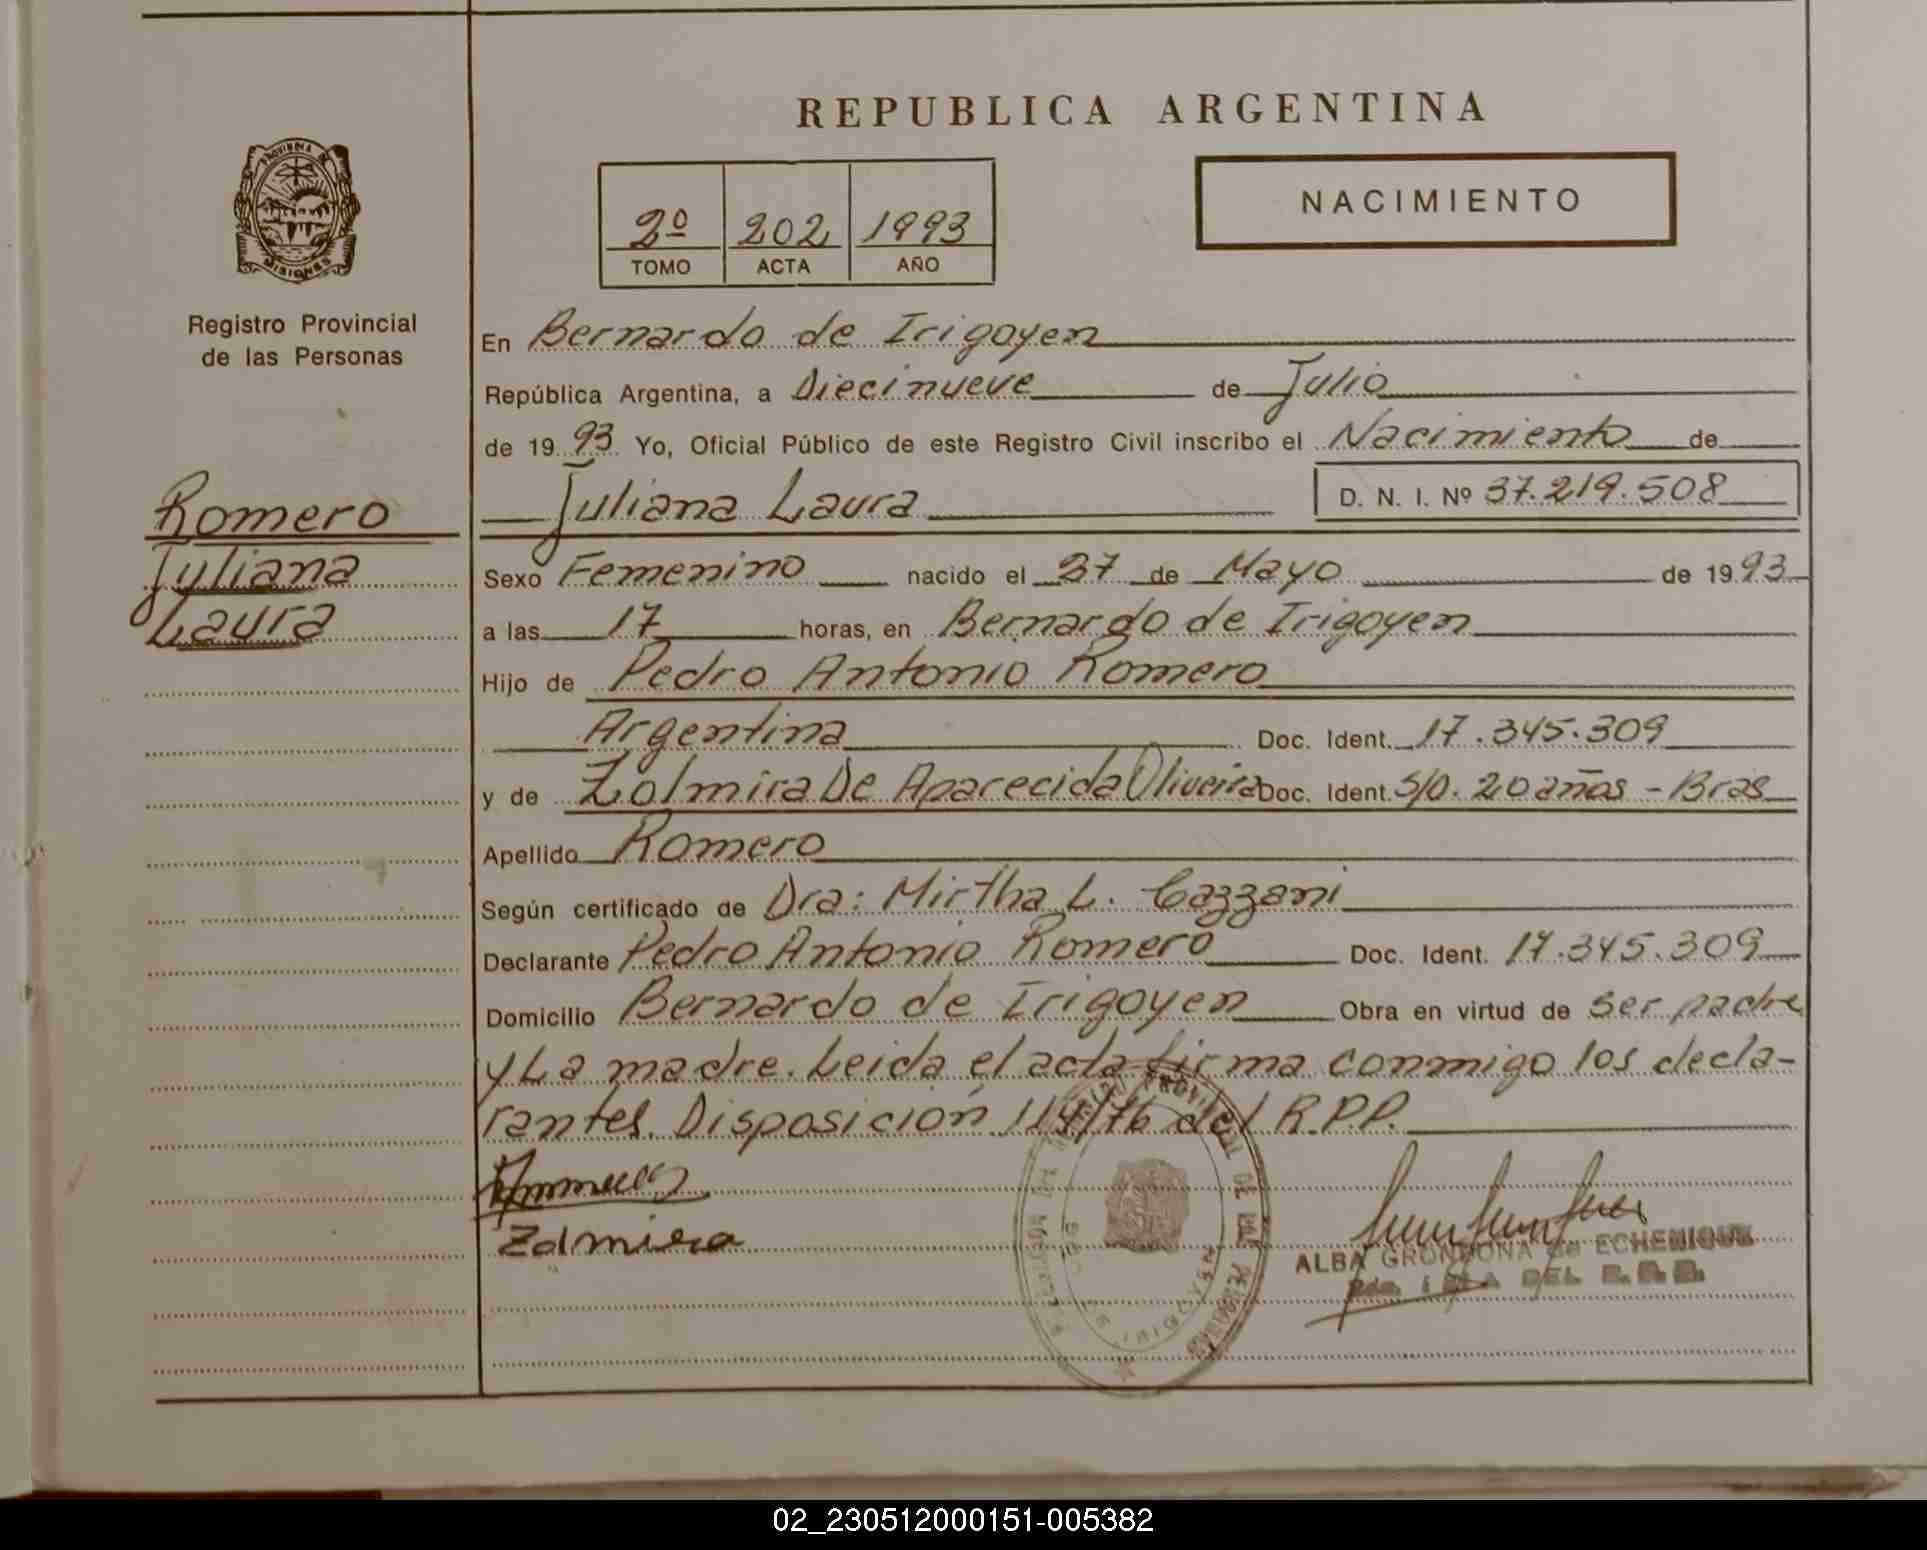 REPUBLICA ARGENTINA
PROVINCIA DE
MISIONES
Registro Provincial
de las Personas
2º 202 1993
TOMO ACTA AÑO
NACIMIENTO
En Bernardo de Irigoyen
República Argentina, a Diecinueve de Julio
de 1993 Yo, Oficial Público de este Registro Civil inscribo el Nacimiento de
Juliana Laura D. N. I. Nº 37.219.508
Romero
Juliana
Laura
Sexo Femenino nacido el 27 de Mayo de 1993
a las 17 horas, en Bernardo de Irigoyen
Hijo de Pedro Antonio Romero
Argentina Doc. Ident. 17.345.309
y de Zolmira De Aparecida Oliveira Doc. Ident. S/D. 20 años - Bras
Apellido Romero
Según certificado de Dra: Mirtha L. Cazzani
Declarante Pedro Antonio Romero Doc. Ident. 17.345.309
Domicilio Bernardo de Irigoyen Obra en virtud de ser padre
y La madre. Leida el acta firma conmigo los decla-
rantes. Disposición 114/76 del R.P.P.
Zolmira
ALBA GRONDONA de ECHENIQUE
DEL
02_230512000151-005382